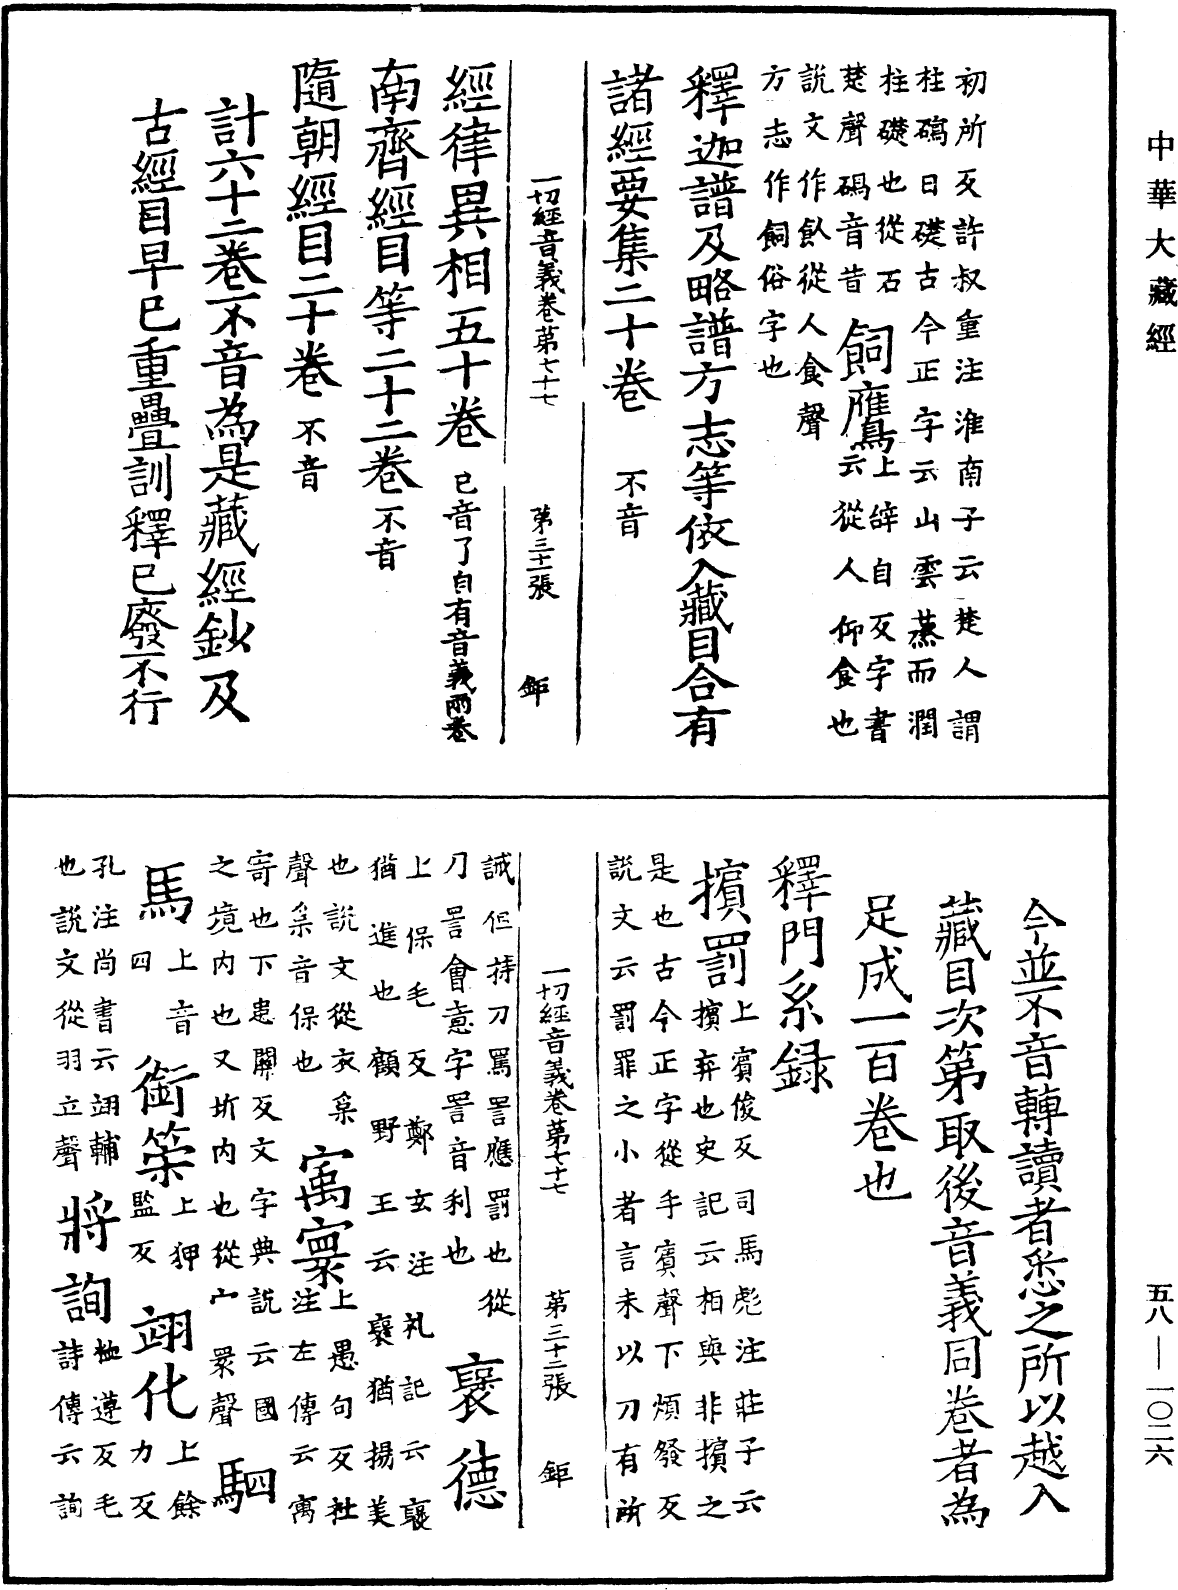 中華大藏經
初所反許叔重注淮南子云楚人謂
柱碣曰礎古今正字云山雲蒸而潤
柱礎也從石
楚聲碣音昔
飼鷹
上辭自反字書
云從人仰食也
說文作飤從人食聲
方志作飼俗字也
釋迦譜及略譜方志等依入藏目合有
諸經要集二十卷 不音
一切經音義卷第七十七 第三十一張 鉅
經律異相五十卷 已音了自有音義兩卷
南齊經目等二十二卷 不音
隨朝經目二十卷 不音
計六十二卷不音為是藏經鈔及
古經目早已重疊訓釋已廢不行
今並不音轉讀者悉之所以越入
藏目次第取後音義同卷者為
足成一百卷也
釋門系録
擯罰
上賓俊反司馬彪注莊子云
擯弃也史記云相與非擯之
是也古今正字從手賓聲下煩發反
說文云罰罪之小者言未以刀有所
一切經音義卷第七十七 第三十二張 鉅
誡但持刀罵詈應罰也從
刀詈會意字詈音利也
襃德
上保毛反鄭玄注礼記云襃
猶進也顧野王云襃猶揚美
也說文從衣䆃
聲䆃音保也
寓寰
上愚句反杜
注左傳云寓
寄也下患關反文字典說云國
之境内也又圻内也從宀睘聲
駟馬
上音
四
銜策
上狎
監反
翊化
上餘
力反
孔注尚書云翊輔
也說文從羽立聲
將詢
桖遵反毛
詩傳云詢
五八—一〇二六